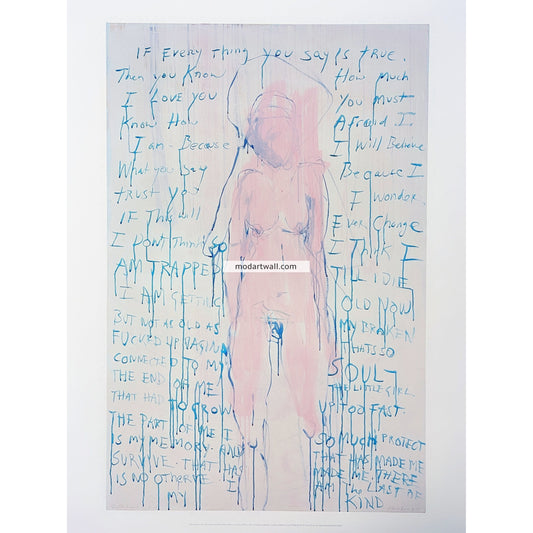 IF EVERY THING YOU SAY IS TRUE.
Then You Know How Much
I LOVE YOU You MUST
Know How Afraid I
I am. Because I Will Believe
What you Say Because I
trust You I wonder.
IF This will Ever Change
I DONT Think I Think I
AM TRAPPED TILL I DIE
modartwall.com
I AM GETTING OLD NOW
BUT NOT AS OLD AS MY BROKEN
FUCKED UP VAGINA THATS SO
CONNECTED TO MY SOUL
THE END OF ME THE LITTLE GIRL
THAT HAD TO GROW UP TOO FAST.
THE PART OF ME I SO MUCH PROTECT
IS MY MEMORY. AND THAT HAS MADE ME
SURVIVE. THAT HAS MADE ME. THERE
IS NO OTHER I AM The LAST OF
MY KIND